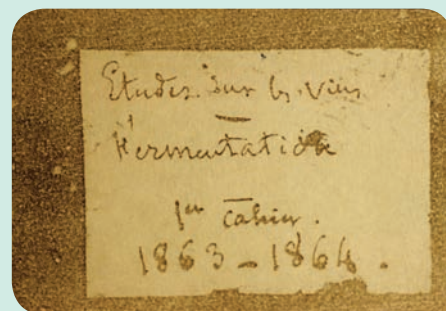 Etudes sur les vins
—
Fermentation
1er Cahier.
1863 - 1864.